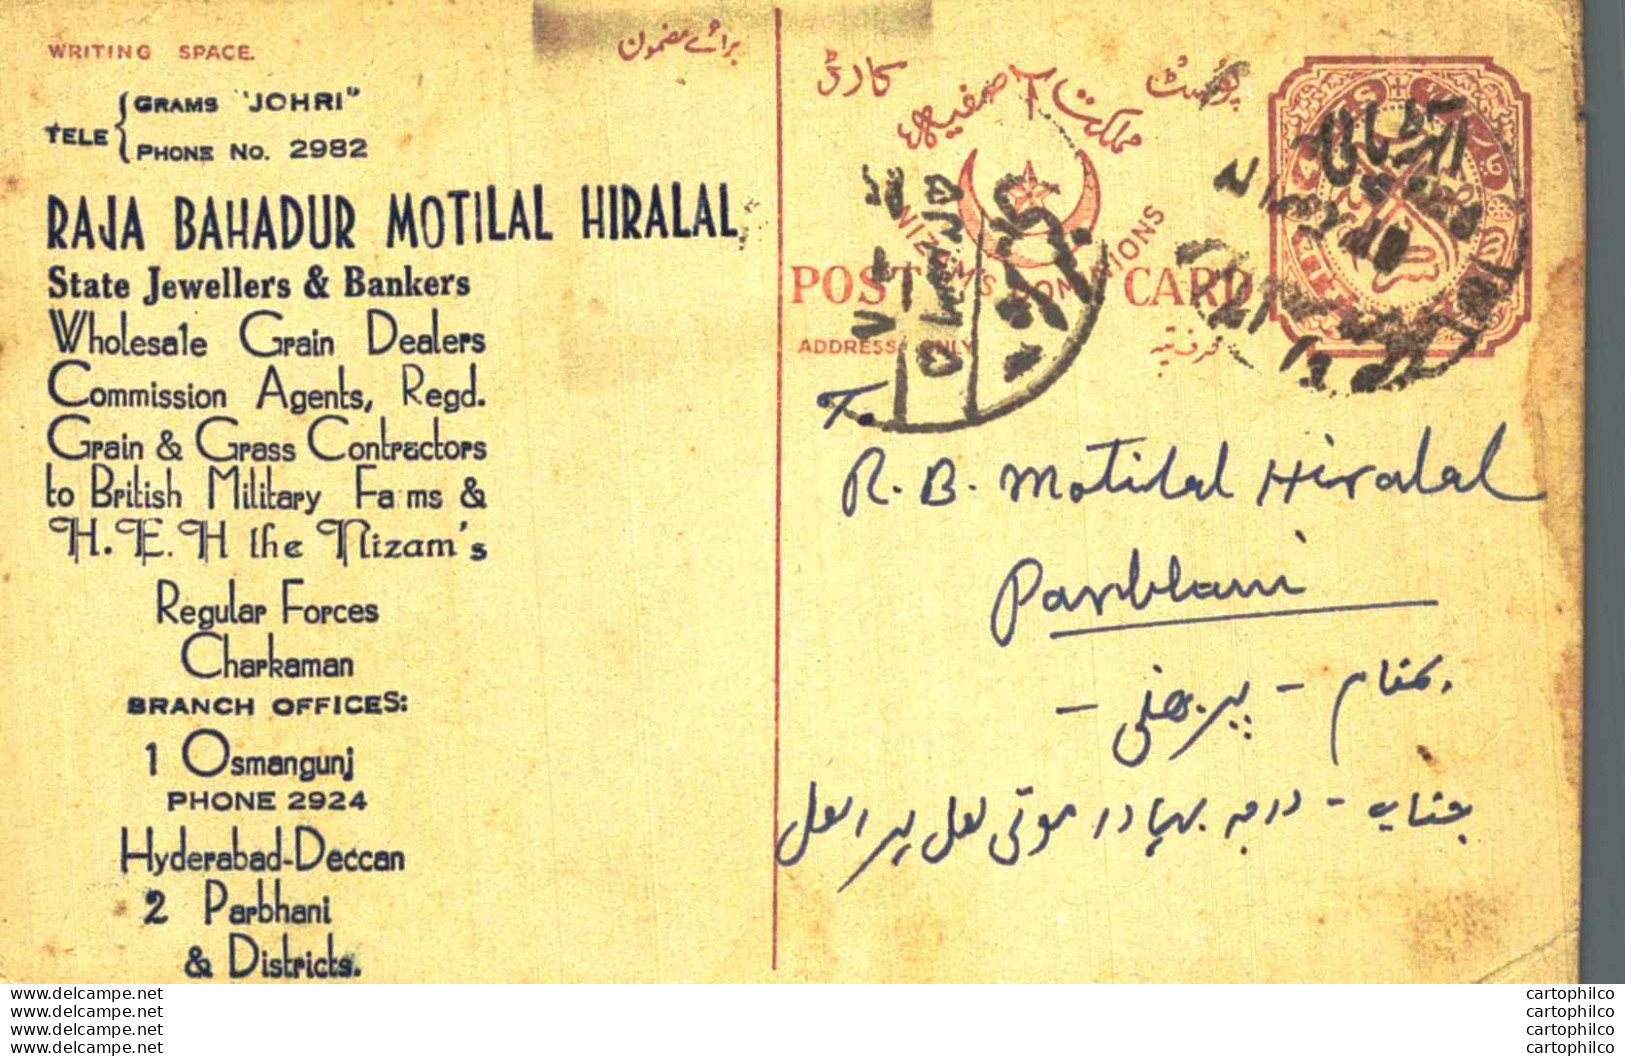 WRITING SPACE.
برائے مضمون
TELE { GRAMS "JOHRI"
PHONE NO. 2982
RAJA BAHADUR MOTILAL HIRALAL,
State Jewellers & Bankers
Wholesale Grain Dealers
Commission Agents, Regd.
Grain & Grass Contractors
to British Military Fa ms &
H.E.H the Nizam's
Regular Forces
Charkaman
BRANCH OFFICES:
1 Osmangunj
PHONE 2924
Hyderabad-Deccan
2 Parbhani
& Districts.
پوسٹ کارڈ
مملکت آصفیہ
NIZAM'S DOMINIONS
POST CARD
ADDRESS ONLY
صرف پتہ
To.
R. B. Motilal Hiralal
Parbhani
بمقام - پربھنی -
جناب - راجہ بہادر موتی لعل ہیرا لعل
www.delcampe.net
www.delcampe.net
www.delcampe.net
www.delcampe.net
cartophilco
cartophilco
cartophilco
cartophilco